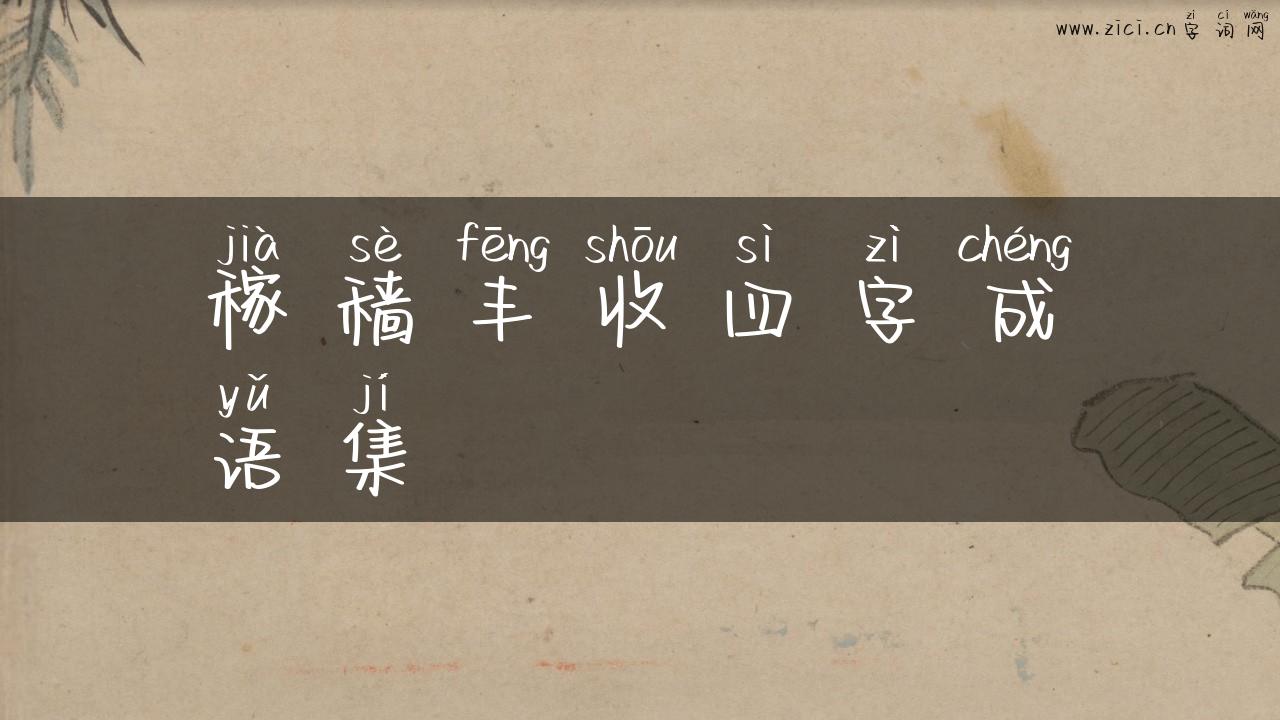 zì cí wǎng
www.zici.cn 字词网
jià sè fēng shōu sì zì chéng
稼穑丰收四字成
yǔ jí
语集